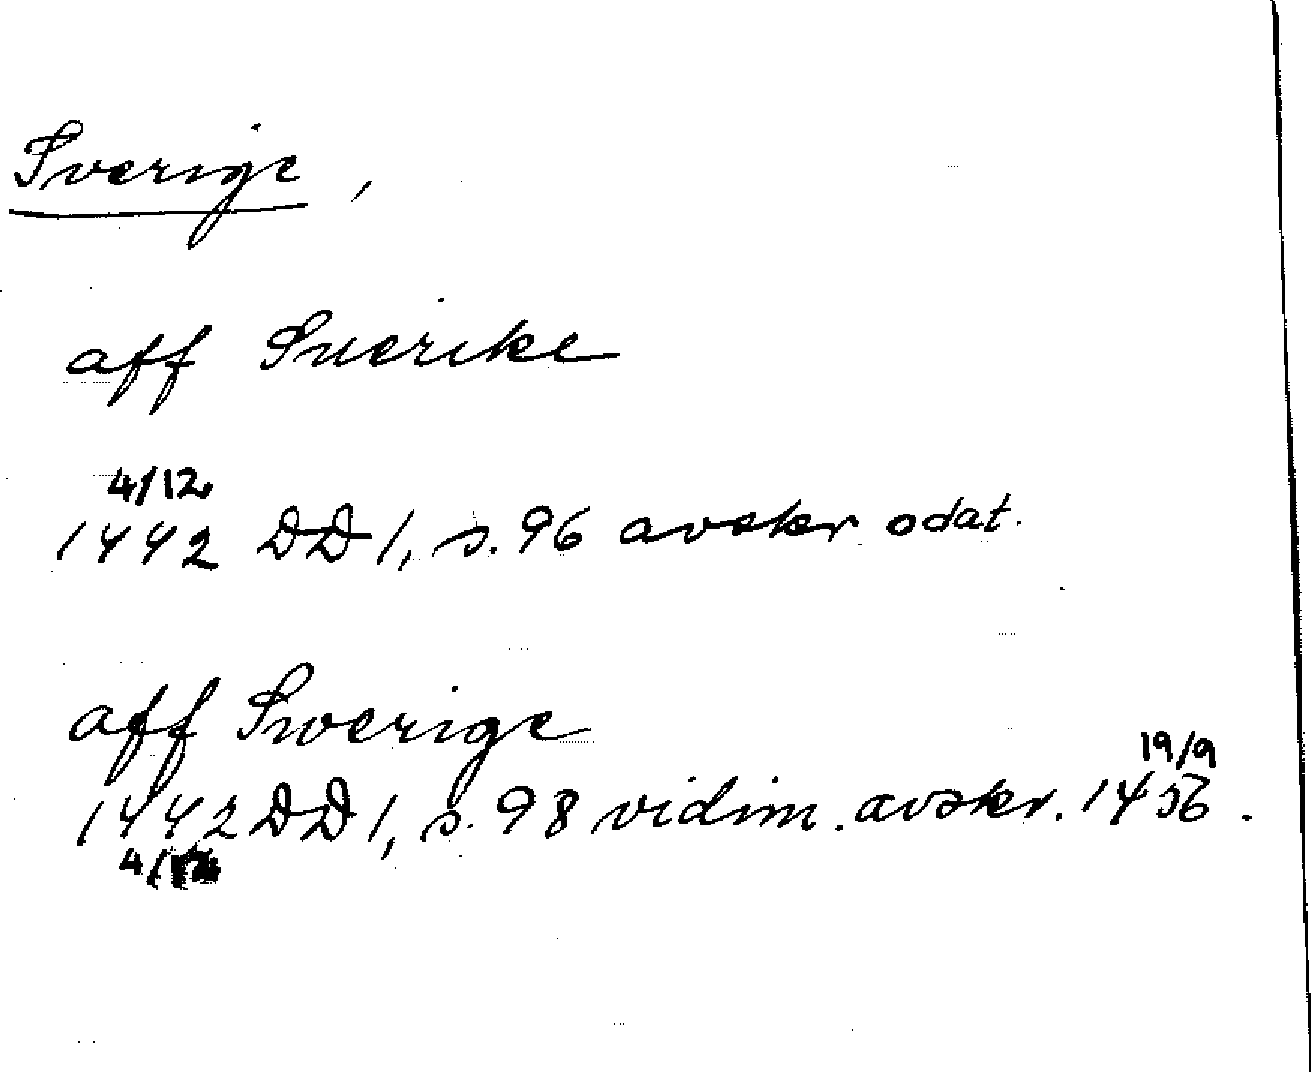 Sverige,
aff Suerike
4/12
1442 DD 1, s. 96 avskr odat.
aff Swerige
19/9
1442 DD 1, s. 98 vidim. avskr. 1456.
4/12